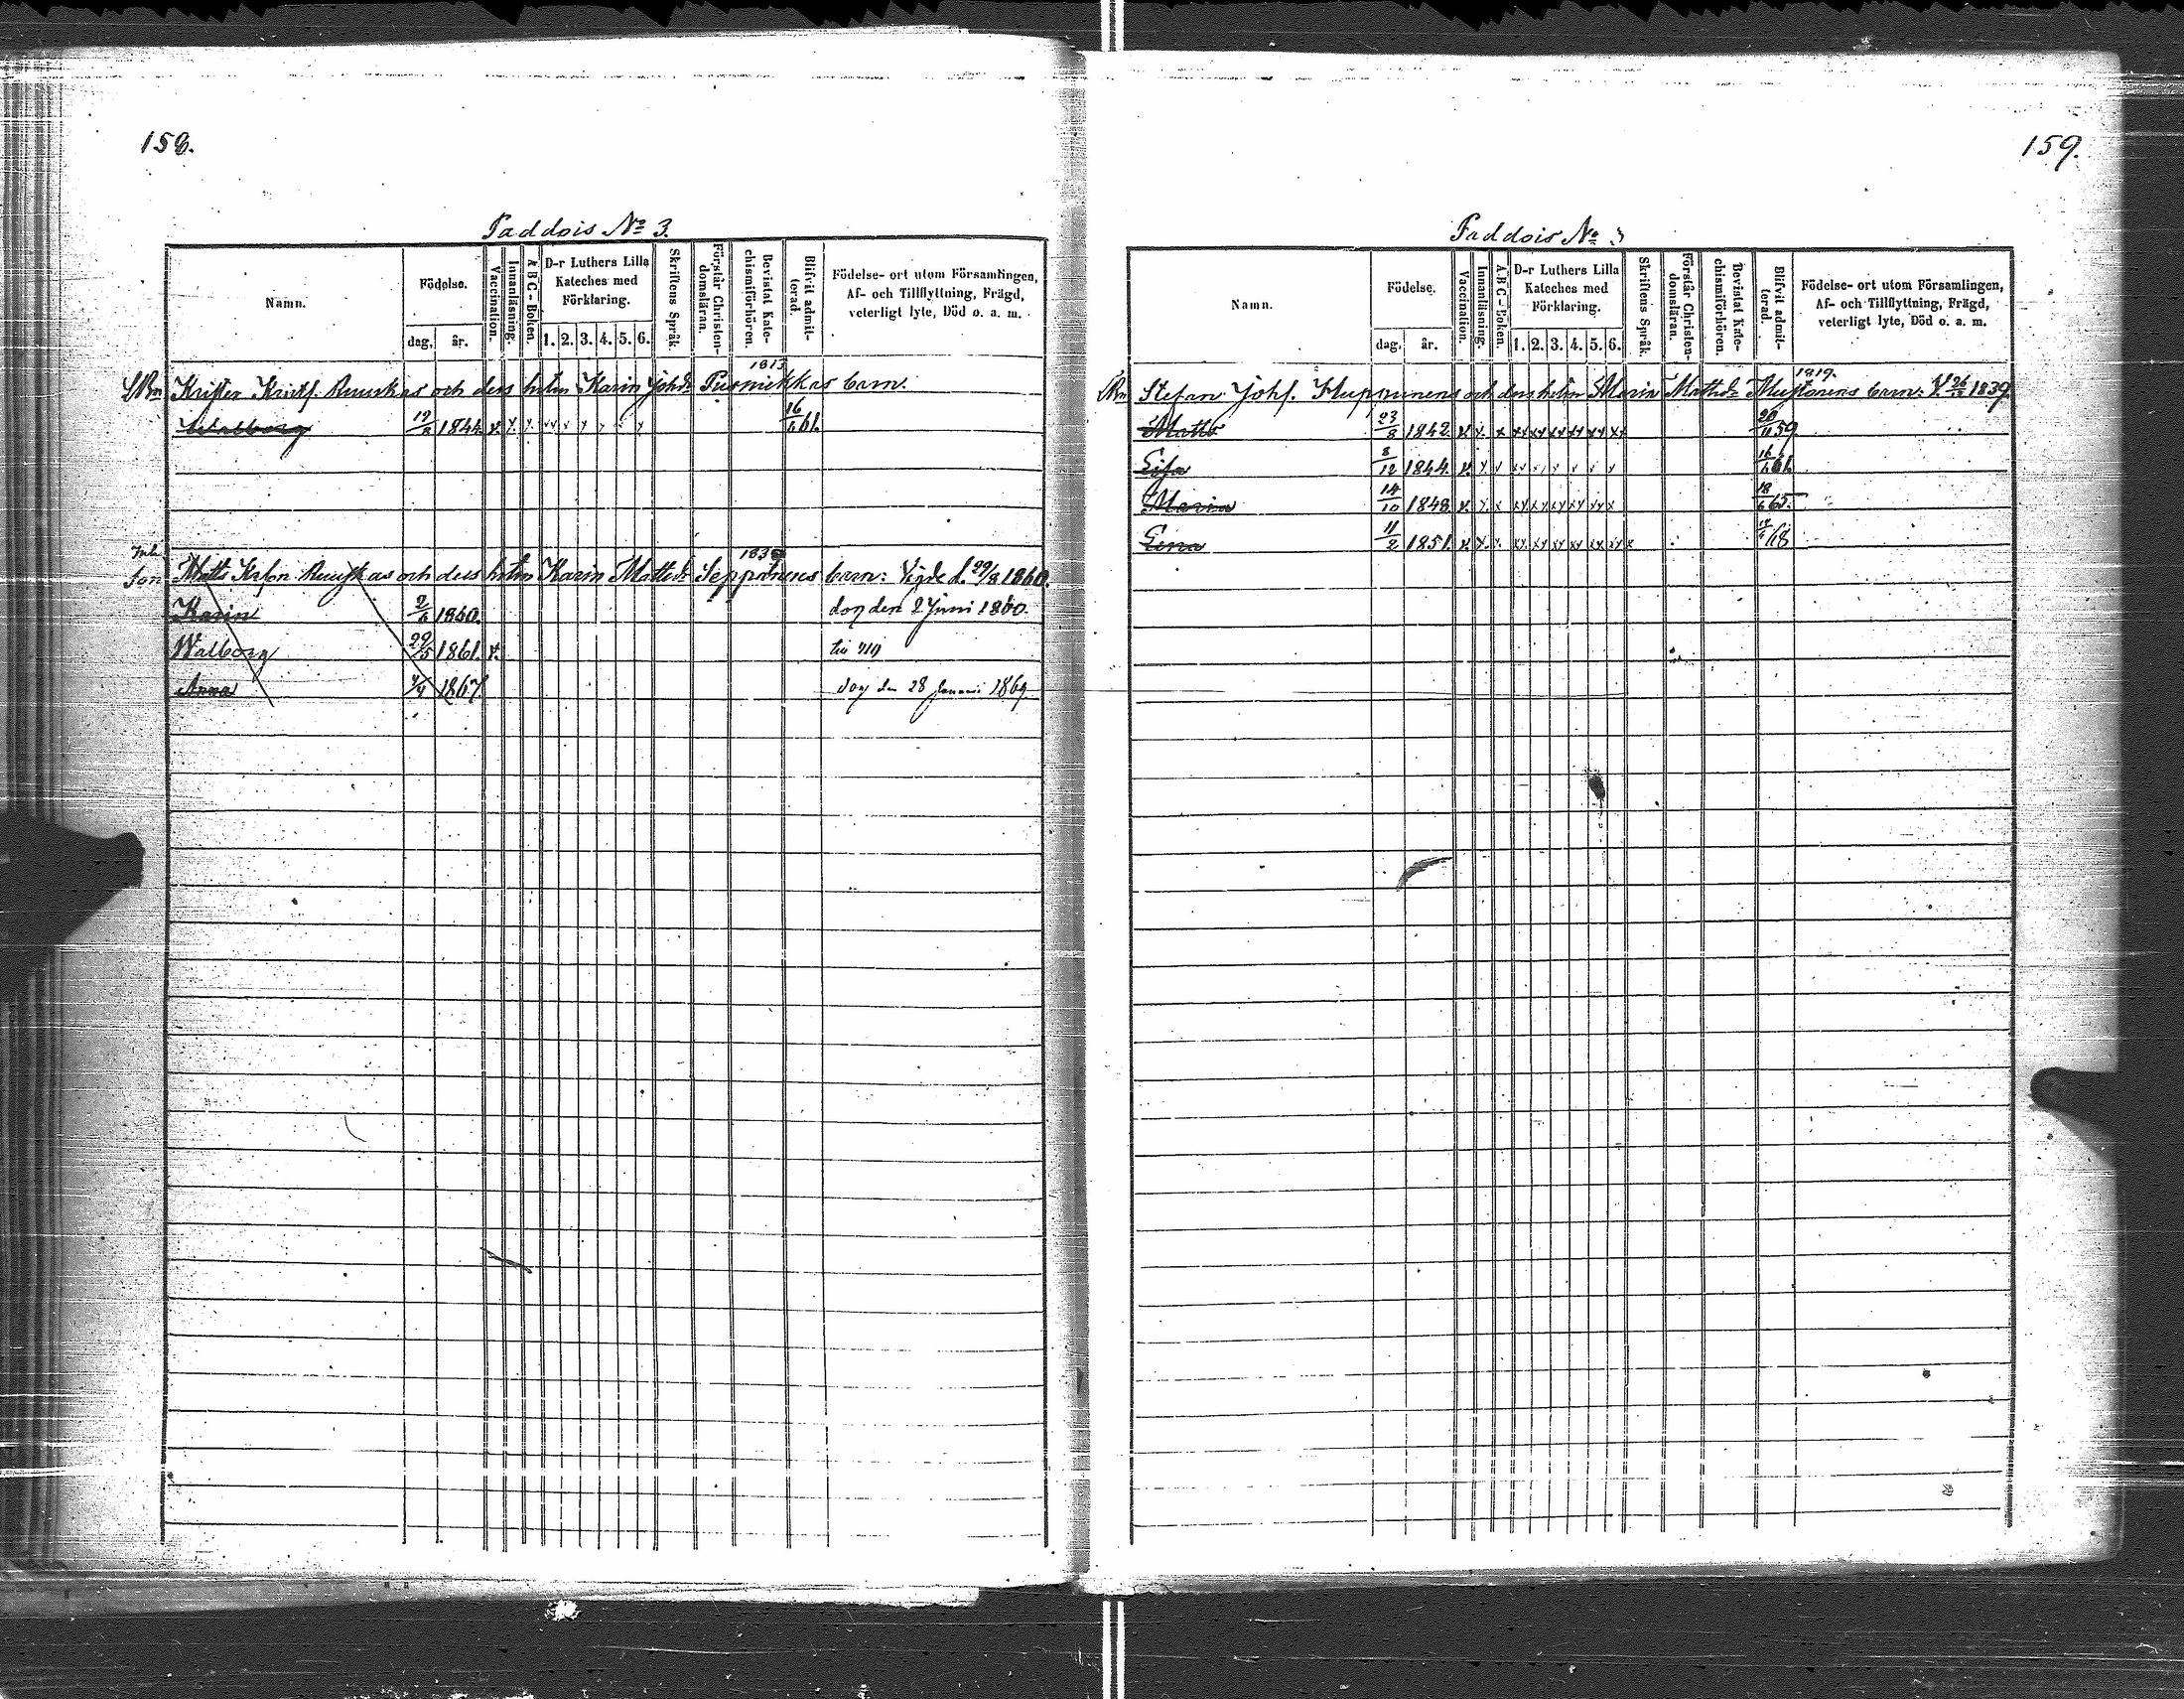 158.
Taddois No 3.
Namn.
Födelse.
dag. år.
Vaccination.
Innanläsning.
A B C - Boken.
D-r Luthers Lilla
Kateches med
Förklaring.
1. 2. 3. 4. 5. 6.
Skriftens Språk.
Förstår Christen-
domsläran.
Bevistat Kate-
chismiförhören.
Blifvit admit-
terad.
Födelse- ort utom Församlingen,
Af- och Tillflyttning, Frägd,
veterligt lyte, Död o. a. m.
1813
Krister Kristf. Ruuskas och dess hstru Karin Johdr Pusniekkas barn.
Walborg 12/2 1844. 16/6 61.
Inh.
Son Matts Krson Ruuskas och dess hstru Karin Mattsdr Seppänens barn: Vigde d. 29/3 1860.
Karin 2/6 1860. dog den 2 Juni 1860.
Walborg 29/5 1861. v. till 419
Anna 4/4 1867. dog den 28 Januari 1869.
159.
Taddois No 3
Namn.
Födelse.
dag. år.
Vaccination.
Innanläsning.
A B C - Boken.
D-r Luthers Lilla
Kateches med
Förklaring.
1. 2. 3. 4. 5. 6.
Skriftens Språk.
Förstår Christen-
domsläran.
Bevistat Kate-
chismiförhören.
Blifvit admit-
terad.
Födelse- ort utom Församlingen,
Af- och Tillflyttning, Frägd,
veterligt lyte, Död o. a. m.
1819.
Stefan Johs. och dess hstru Maria Mattsdr Mustonens barn: V. 26/12 1839.
Matts 23/8 1842. v. x x xx xx xx xx xx xx 20/11 59
Lisa 8/12 1844. v. 16/6 61.
Maria 14/10 1848. v. 18/6 65.
Lena 11/2 1851. v. 14/6 68